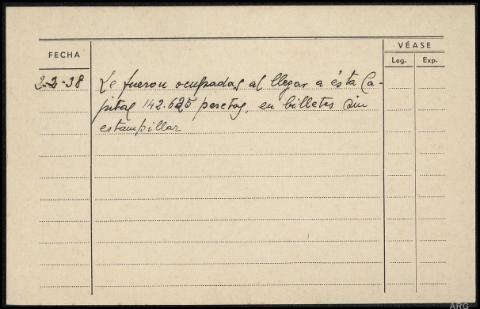 FECHA
VÉASE
Leg. Exp.
2-2-38 Le fueron ocupadas al llegar a ésta Ca-
pital 142.625 pesetas, en billetes sin
estampillar
ARG